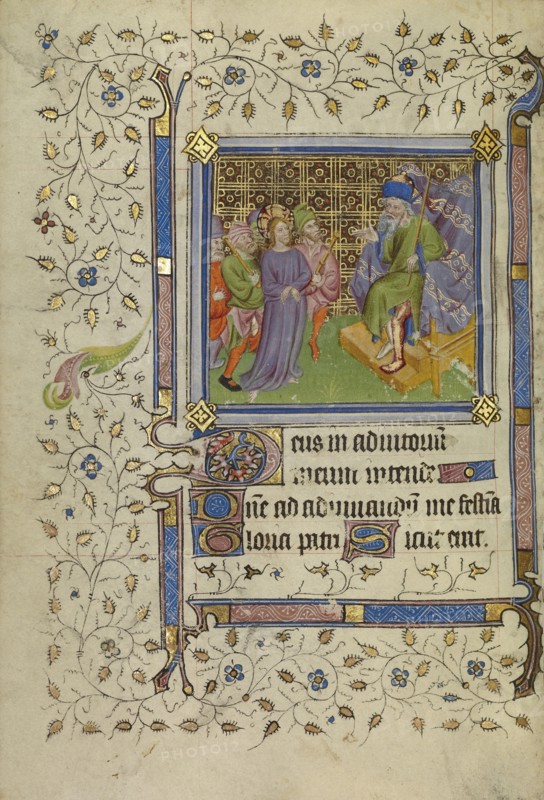 Deus in adiutoriū
meum intende
Dn̄e ad adiuuandū me festīa
Gloria patri Sicut erat.
PHOTO12